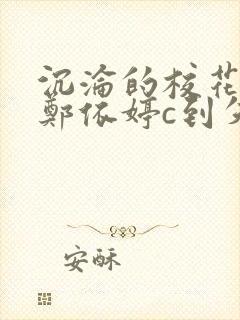 沉淪的校花
鄭依婷c到
安酥